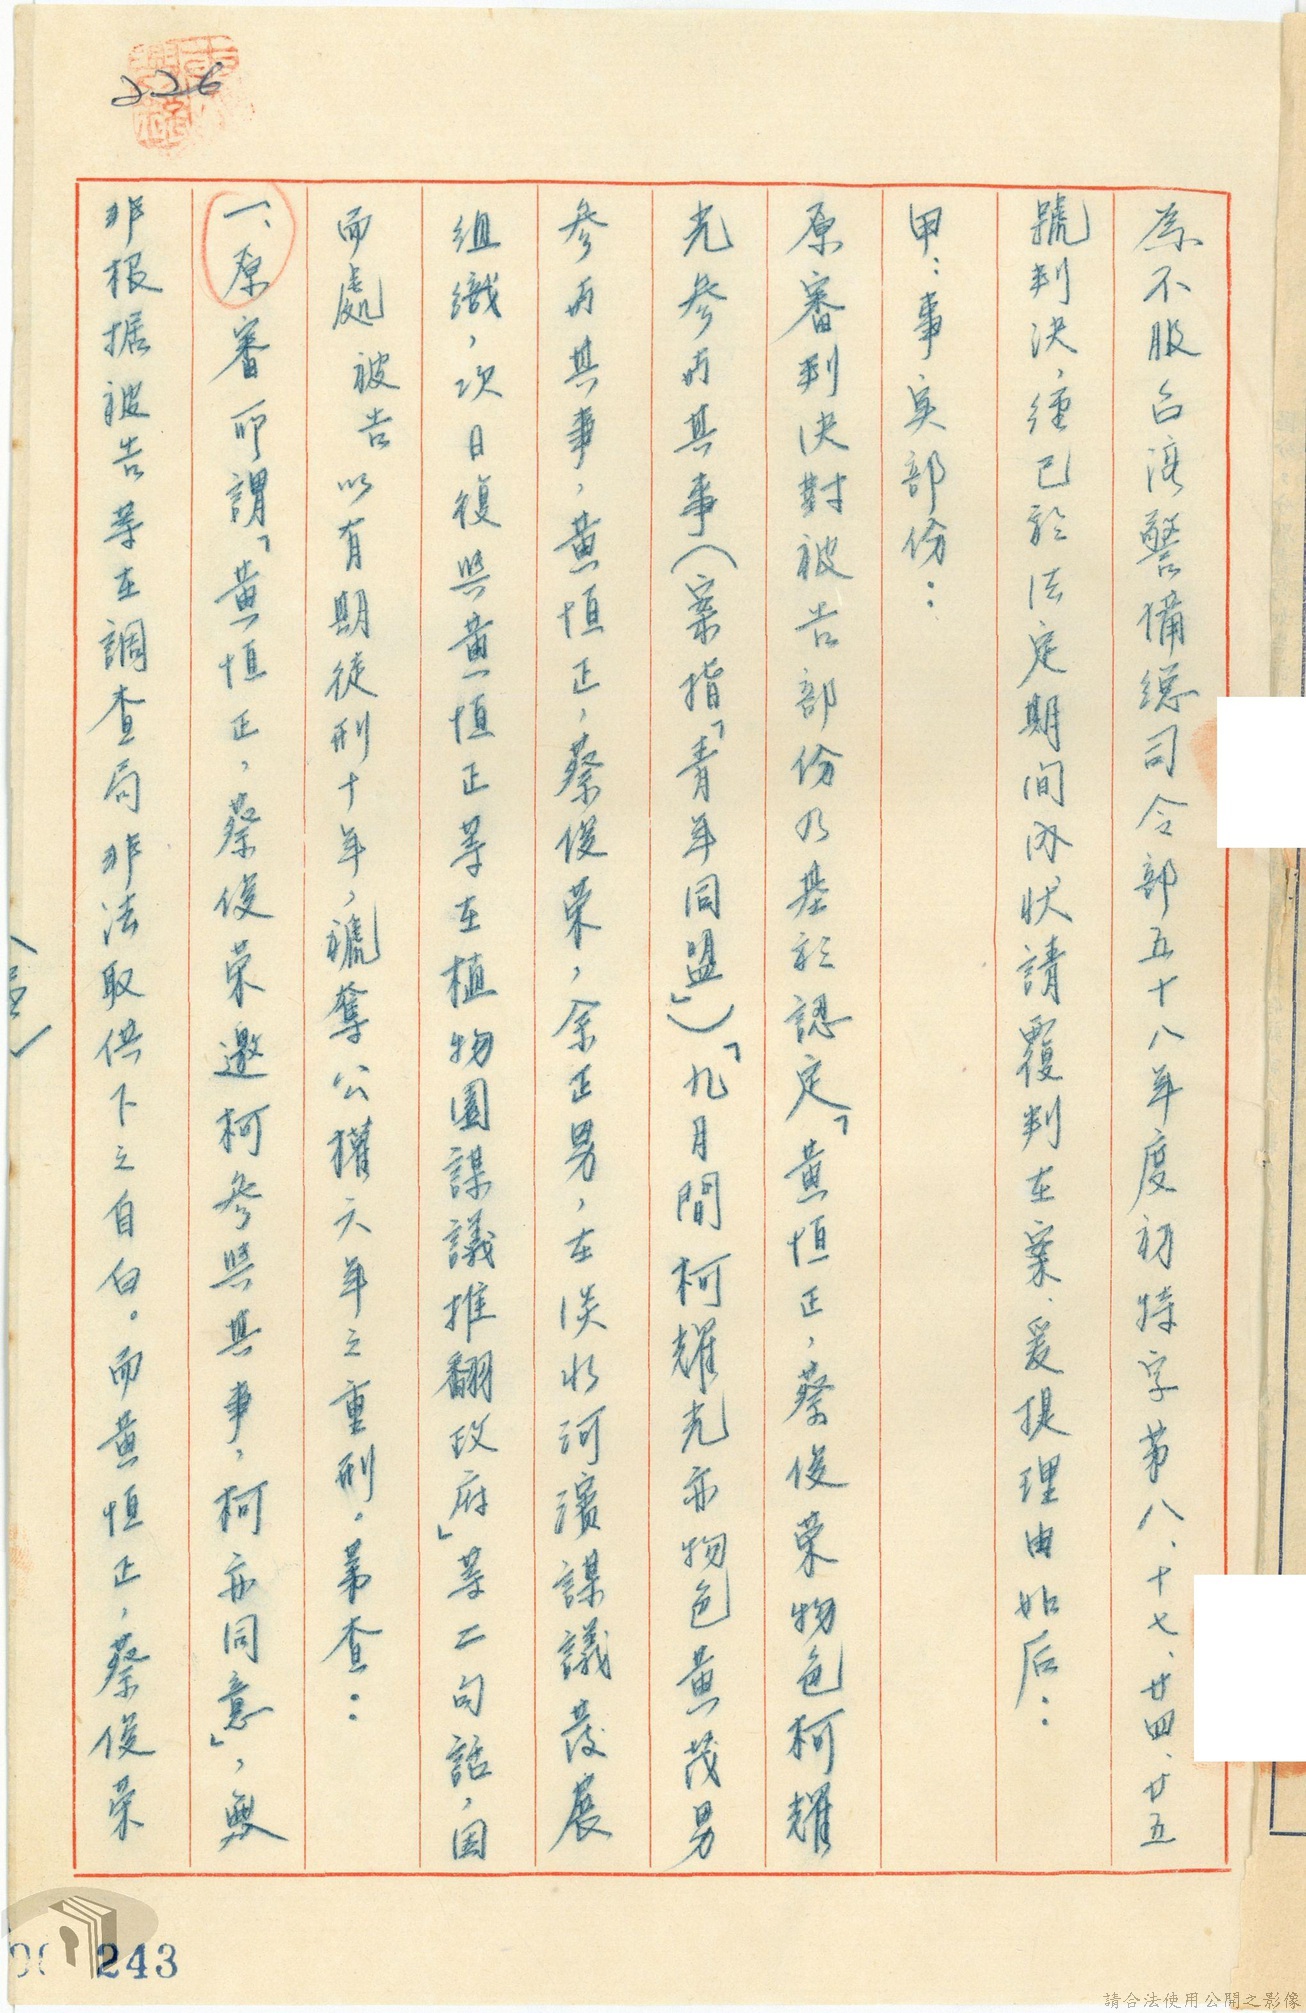 226
為不服台湾警備總司令部五十八年度初特字第八、十七、廿四、廿五
號判決，經已於法定期間內狀請覆判在案，爰提理由如后：
甲：事实部份：
原審判決對被告部份乃基於認定「黃恒正，蔡俊荣物色柯耀
光參與其事（案指「青年同盟」）「九月間柯耀光亦物色黃茂男
參與其事，黃恒正，蔡俊荣，余正男，在淡水河濱謀議發展
組織，次日復與黃恒正等在植物園謀議推翻政府」等二句話，因
而處被告以有期徒刑十年，褫奪公權六年之重刑。第查：
一、原審所謂「黃恒正，蔡俊荣邀柯參與其事，柯亦同意」，無
非根据被告等在調查局非法取供下之自白。而黃恒正，蔡俊荣
243
請合法使用公開之影像